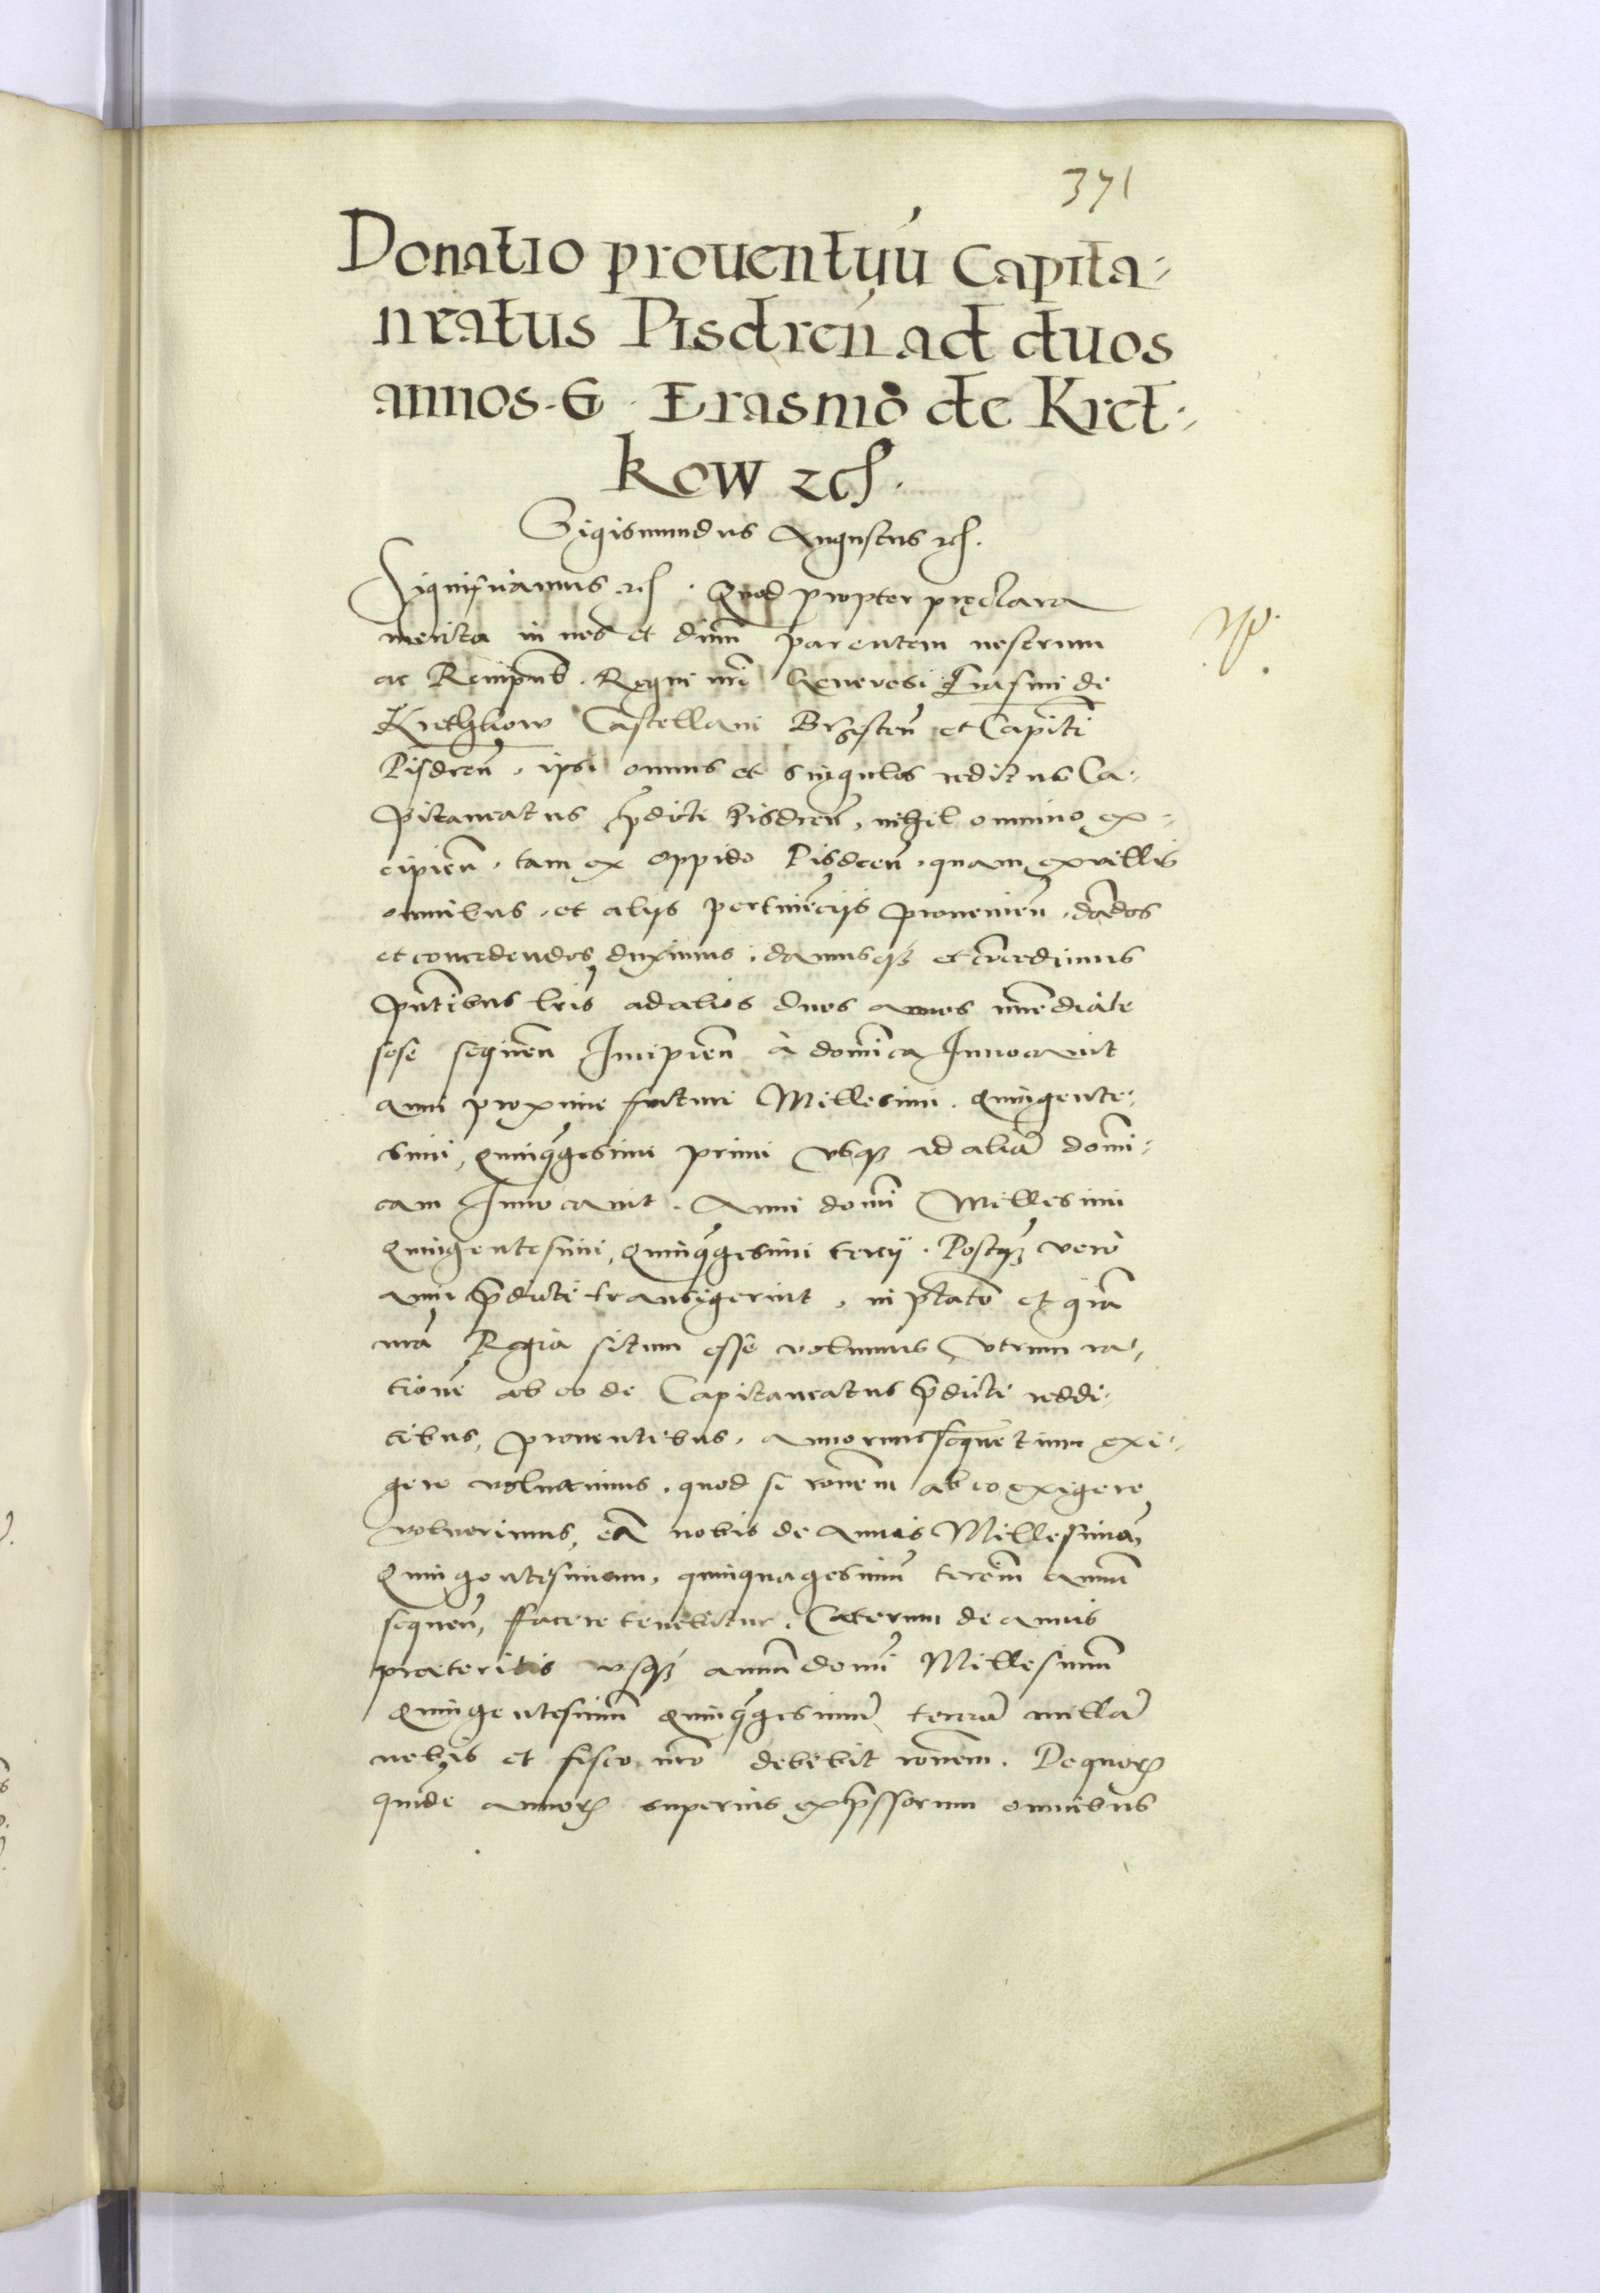 371
Donatio prouentuũ Capita-
neatus Pisdreñ ad duos
annos. G. Erasmo de Kret-
kow etc.
Sigismundus Augustus etc.
Significamus etc. Quod propter pręclara
merita in nos et diuũ parentem nostrum
ac Reimpub. Regni nr̃i Generosi Erasmi de
Krethkow Castellani Brzesteñ et Capiti
Pisdreñ, ipsi omnes et singulos reditus Ca-
pitaneatus p̃dicti Pisdreñ, nihil omnino ex-
cipieñ, tam ex oppido Pisdreñ, quam ex villis
omnibus, et alijs pertinẽcijs prouenieñ, dãdos
et concedendos duximus, damusq; et cõcedimus
pñtibus lr̃is ad alios duos annos imẽdiate
sese sequeñ Incipieñ à domĩca Inuocauit
anni proxime futuri Millesimi. Quingente-
simi, quinq̃gesimi primi vsq; ad aliã domi-
cam Inuocauit. Anni domĩ Millesimi
Quingentesimi, quinq̃gesimi tercij. Postq̃ verò
anni p̃dicti transigerint, in p̃tate et gr̃a
nr̃a Regia situm esse volumus vtrum ra-
tionẽ ab eo de Capitaneatus p̃dicti reddi-
tibus, prouentibus, annorum sequẽtium exi-
gere voluerimus, quod si rõnem ab eo exigere
voluerimus, eã nobis de annis Millesimũ
Quingentesimum, quinquagesimũ terciũ annũ
sequeñ, facere tenebitur. Caeterum de annis
praeteritis vsq; annũ domĩ Millesimum
Quingentesimũ quinq̃gesimũ terciũ nullã
nobis et fisco nr̃o debebit rõnem. De quorũ
quidẽ annorũ superius exp̃ssorum omnibus